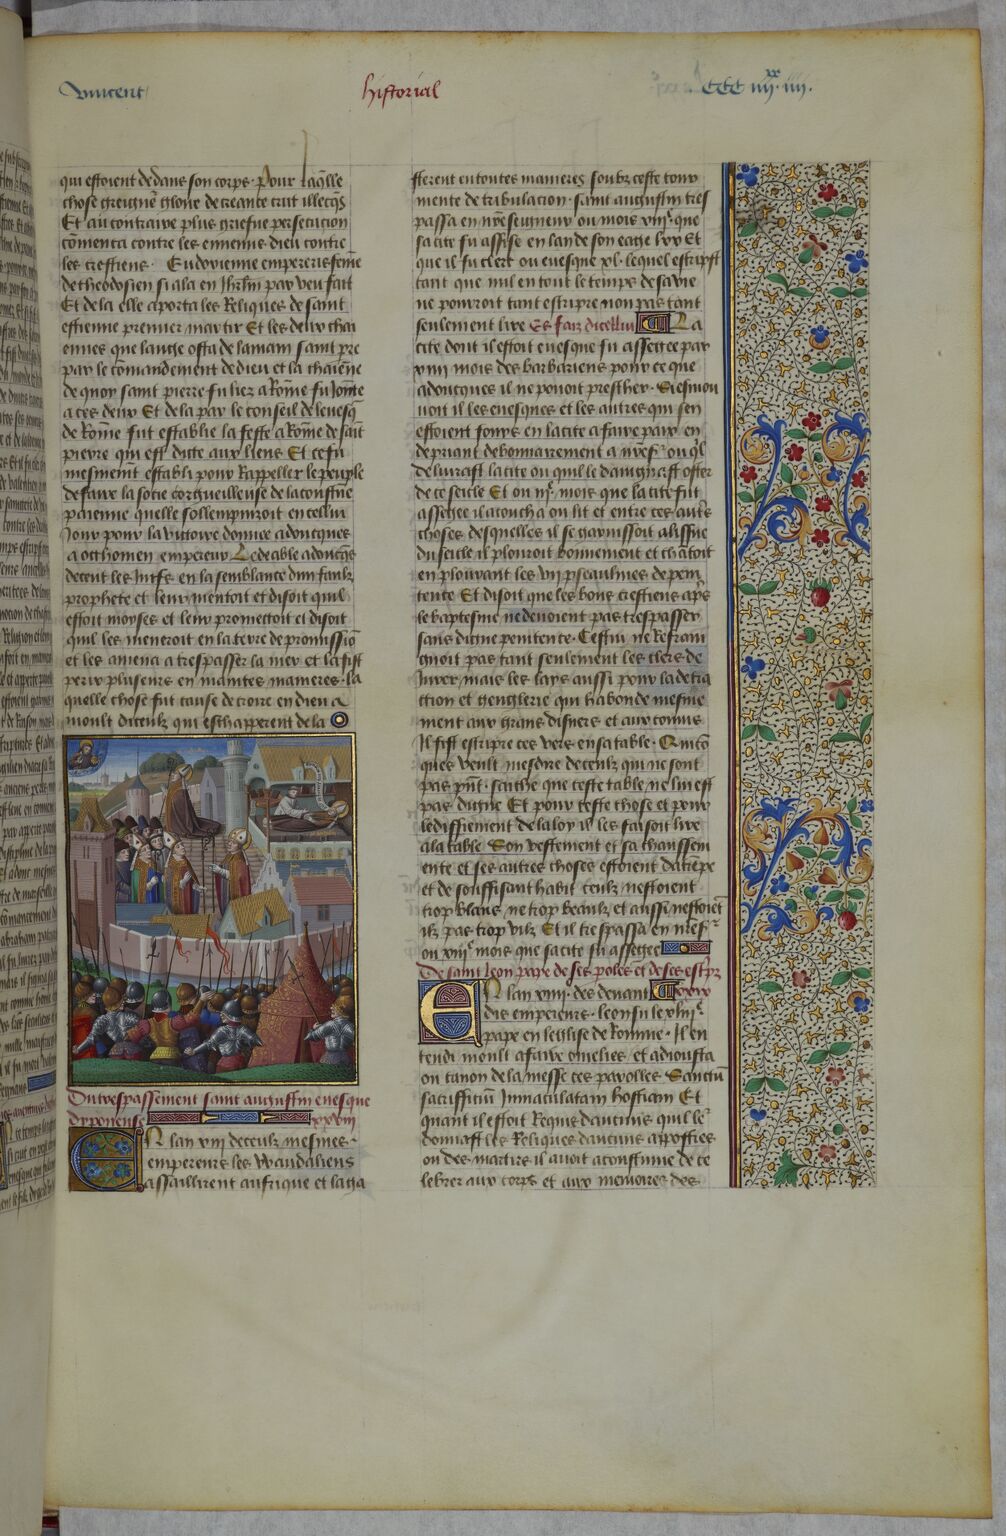 Vincent
historial
CCC iiii xx iiii.
qui estoient dedans son corps. Pour laqlle
chose greigne gloire de creante crut illecqs
Et au contraire plus griefue persecucion
comenca contre les ennemis dieu contre
les crestiens. Eudovienne empereris feme
de theodosien si ala en Jhrlm par veu fait
Et de la elle aporta les Reliques de saint
estienne premier martir Et les deux chai
ennes que lange osta de la main saint pre
par le comandement de dieu et la chaiene
de quoy saint pierre fu liez a Rome fu jointe
a ces deux Et de la par le conseil de levesq
de Rome fut establie la feste a Rome de sait
pierre qui est dicte aux liens Et ce fu
mesmemt establi pour Rappeller le peuple
de faire la sotie corgueilleuse de la coustue
paienne quelle sollempnizoit en cellui
Jour pour la victoire donnee adoncques
a octhomen empereur Le deable adoncqs
deceut les Juifs en la semblance dun faulx
prophete et leur mentoit et disoit quil
estoit moyses et leur promettoit et disoit
quil les menroit en la terre de promissio
et les amena a trespasser la mer et la fist
perir plusieurs en maintes manieres. la
quelle chose fut cause de croire en dieu a
moult diceulx qui eschapperent de la
Du trespassement saint augustin evesque
dyponense xxviii
En lan viii diceulx mesmes
empereurs les Wandaliens
assaillirent aufrique et la ga
sterent en toutes manieres soubz ceste tour
mente de tribulacion. saint augustin tres
passa en nre seigneur ou mois viiie que
sa cite fu assise en lan de son eage lxx Et
que il fu clerc ou evesque xl. lequel escript
tant que nul en tout le temps de sa vie
ne pourroit tant escripre non pas tant
seulement lire Es faiz dicellui La
cite dont il estoit evesque fu assegee par
xiiii mois des barbariens pour ce que
adoncques il ne povoit prescher. Si esmou
voit il les evesques et les autres qui sen
estoient fouys en la cite a faire paix en
depriant debonnairement a nres ou ql
delivrast la cite ou quil le daingnast oster
de ce siecle Et ou iiie mois que la cite fut
assegee il acoucha ou lit et entre ces autrs
choses desquelles il se garnissoit a lissue
du siecle il plouroit bonnement et chatoit
en plourant les vii pseaulmes de peni
tence Et disoit que les bons crestiens aps
le baptesme ne devoient pas trespasser
sans digne penitence. Cestui ne Refrain
gnoit pas tant seulement les clers de
Jurer mais les lays aussi pour la detra
ction et genglerie qui habonde mesme
ment aux grans disners et aux comuns
Il fist escripre ces vers en sa table. Quico
ques veult mesdire de ceulx qui ne sont
pas pnt. saiche que ceste table ne lui est
pas digne Et pour ceste chose et pour
ledifiement de la loy il les faisoit lire
a la table Son vestement et sa chaussem
ente et ses autres choses estoient datrepe
et de souffisant habit ceulx nestoient
trop blans ne trop beaulx et aussi nestoiet
ilz pas trop vilz Et il trespassa en nres
ou viiie mois que sa cite fu assegee
De saint leon pape de ses poles et de ses escps
En lan xiiii. des devant xxix
dis empereurs. leon fu le xliiie
pape en leglise de Romme. Il en
tendi moult a faire omelies et adiousta
ou canon de la messe ces parolles. Sanctum
sacrificium Immaculatam hostiam Et
quant il estoit Requis daucuns quil leur
donnast les Reliques daucuns appostres
ou des martirs il avoit acoustume de ce
lebrer aux corps et aux memoires des